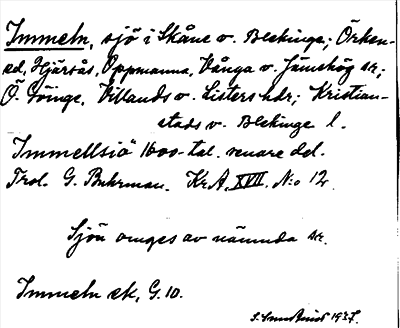 Immeln, sjö i Skåne o. Blekinge; Örken-
ed, Hjärsås, Oppmanna, Vånga o. Jämshög sk;
Ö. Göinge, Villands o. Listers hdr; Kristian-
stads o. Blekinge l.
Immellsiö 1600-tal. senare del.
Trol. G. Buhrman. Kr.A. XVII. N:o 12
Sjön omges av nämnda sk.
Immeln ek, G.10.
1937.